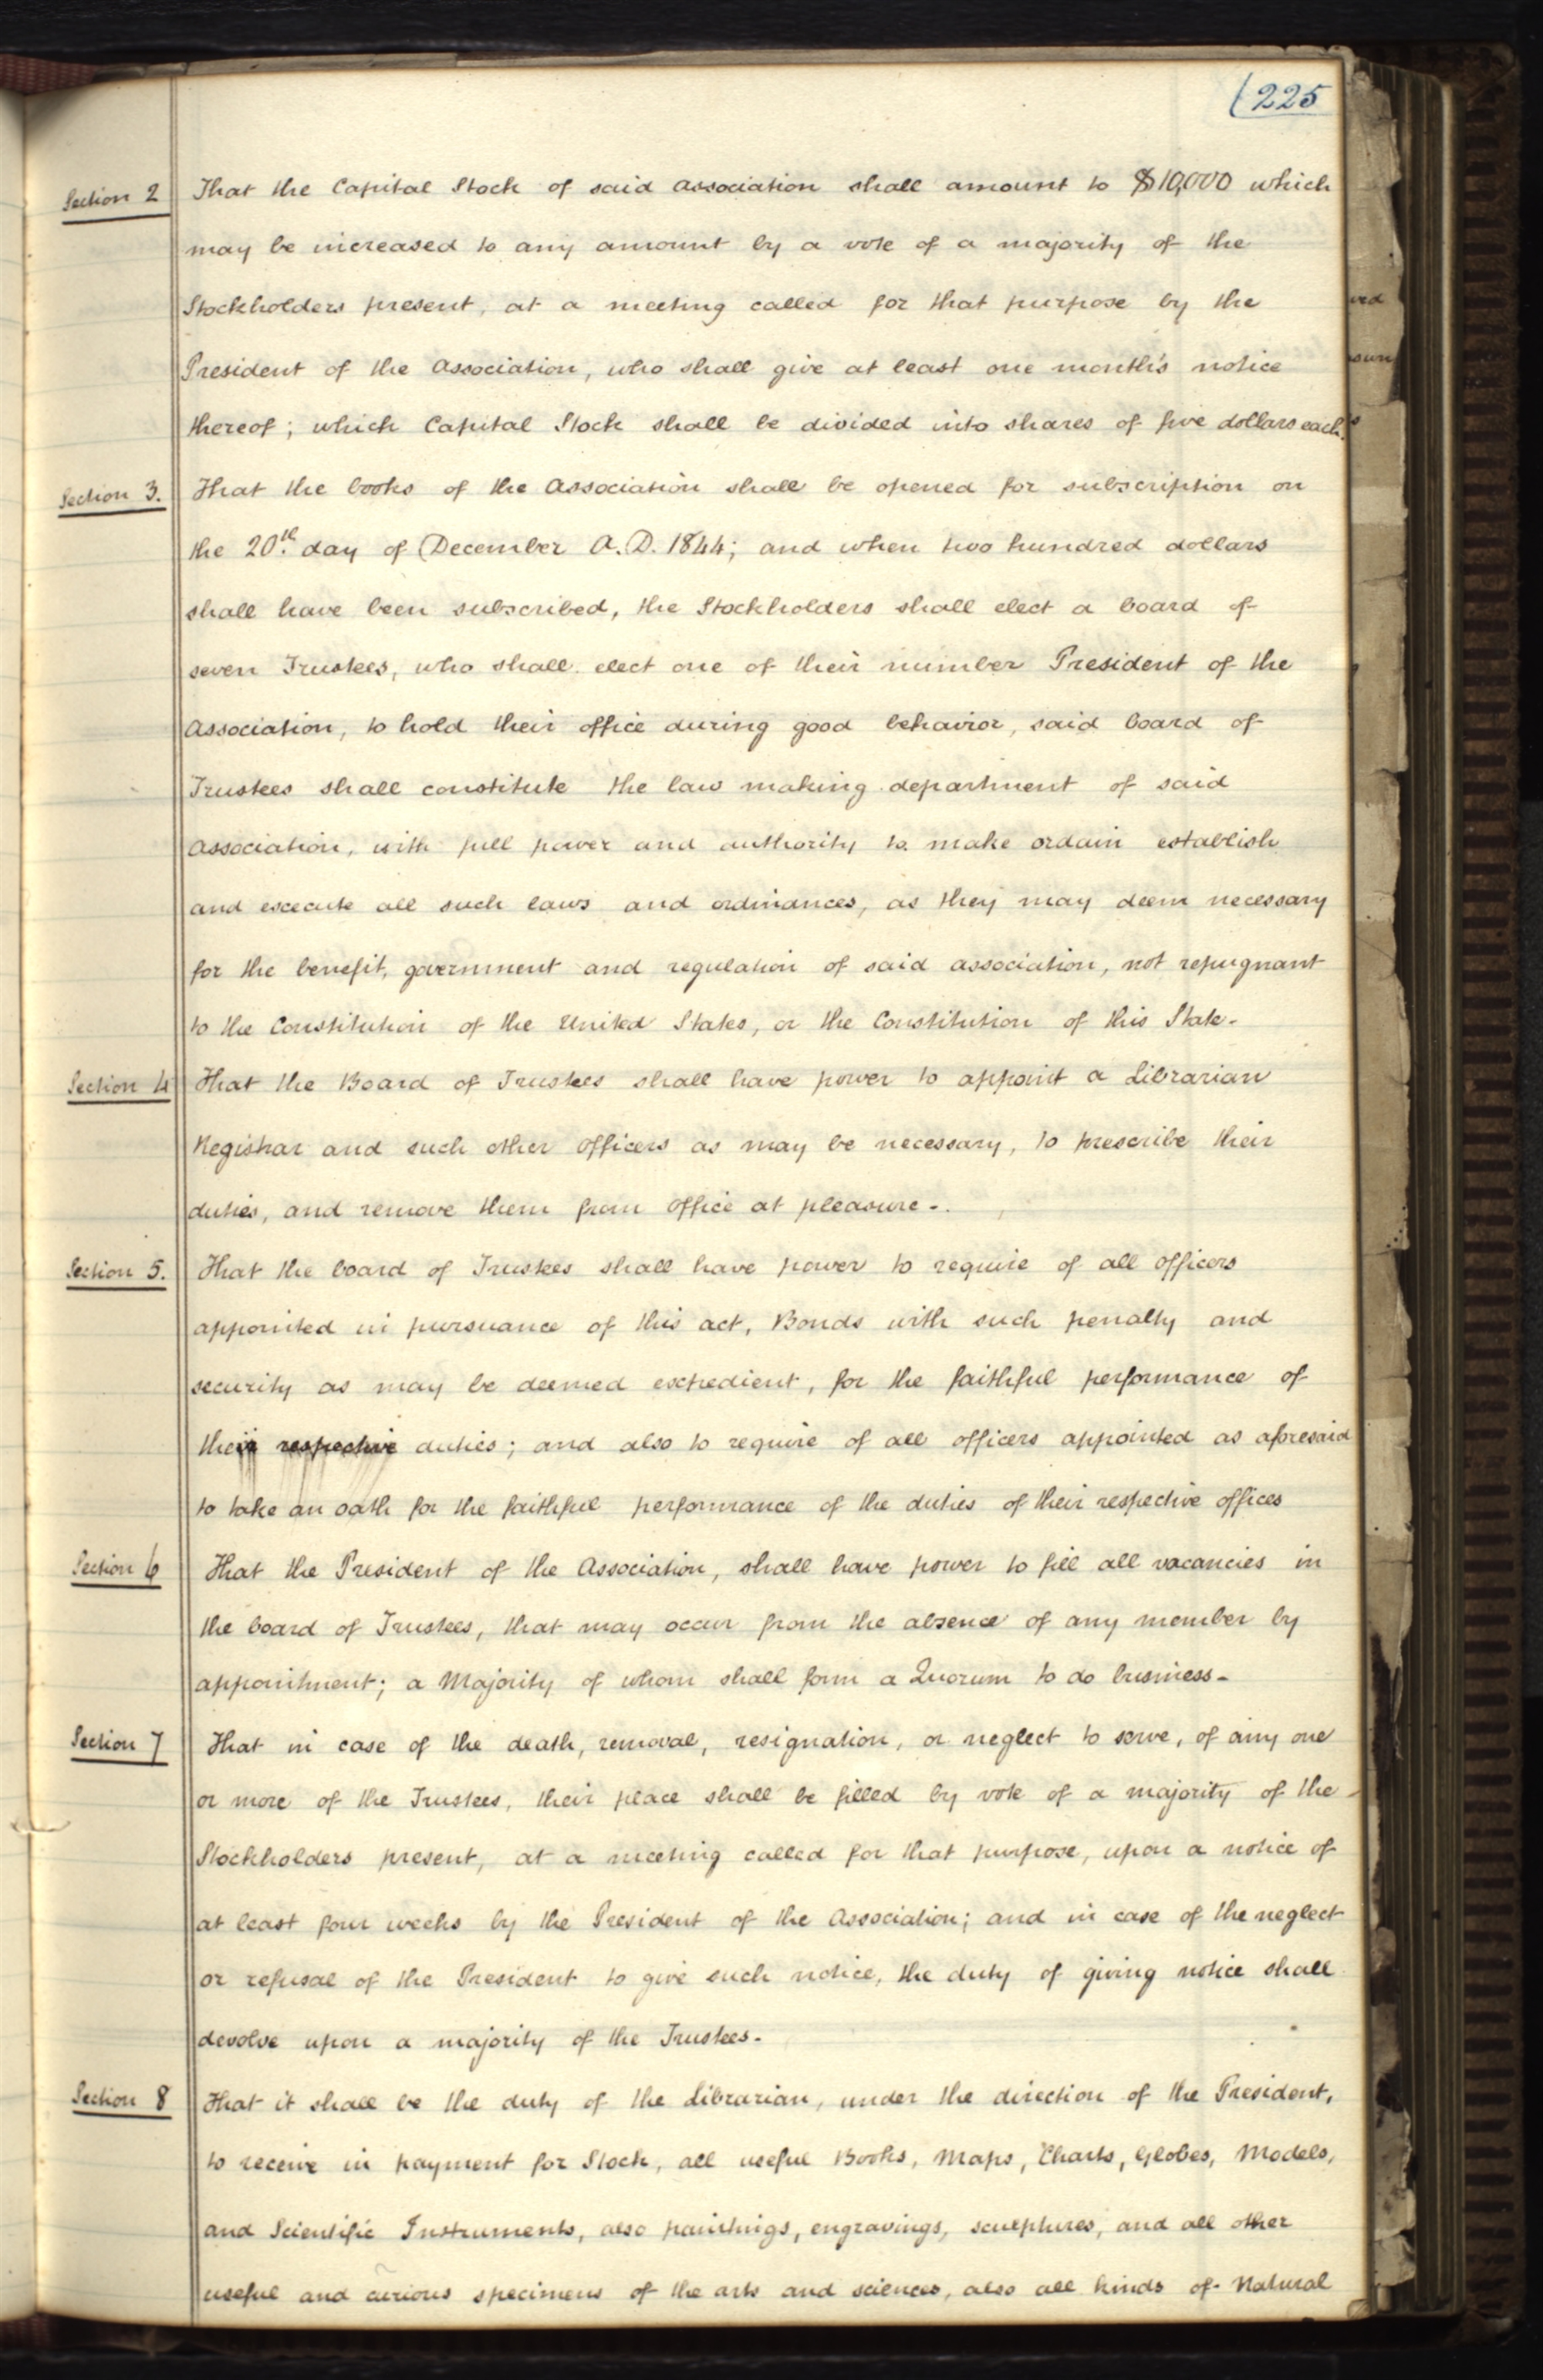 (225
Section 2 That the Capital Stock of said Association shall amount to $10,000 which
may be increased to any amount by a vote of a majority of the
Stockholders present, at a meeting called for that purpose by the
President of the Association, who shall give at least one month's notice
thereof; which Capital Stock shall be divided into shares of five dollars each.
Section 3. That the books of the Association shall be opened for subscription on
the 20th day of December A.D. 1844; and when two hundred dollars
shall have been subscribed, the Stockholders shall elect a board of
seven Trustees, who shall elect one of their number President of the
Association, to hold their office during good behavior, said board of
Trustees shall constitute the law making department of said
Association, with full power and authority to make ordain establish
and execute all such laws and ordinances, as they may deem necessary
for the benefit, government and regulation of said association, not repugnant
to the Constitution of the United States, or the Constitution of this State.
Section 4 That the Board of Trustees shall have power to appoint a Librarian
Registrar and such other officers as may be necessary, to prescribe their
duties, and remove them from office at pleasure.
Section 5. That the board of Trustees shall have power to require of all officers
appointed in pursuance of this act, Bonds with such penalty and
security as may be deemed expedient, for the faithful performance of
their respective duties; and also to require of all officers appointed as aforesaid
to take an oath for the faithful performance of the duties of their respective offices
Section 6 That the President of the Association, shall have power to fill all vacancies in
the board of Trustees, that may occur from the absence of any member by
appointment; a Majority of whom shall form a Quorum to do business-
Section 7 That in case of the death, removal, resignation, or neglect to serve, of any one
or more of the Trustees, their place shall be filled by vote of a majority of the
Stockholders present, at a meeting called for that purpose, upon a notice of
at least four weeks by the President of the Association; and in case of the neglect
or refusal of the President to give such notice, the duty of giving notice shall
devolve upon a majority of the Trustees-
Section 8 That it shall be the duty of the Librarian, under the direction of the President,
to receive in payment for Stock, all useful Books, Maps, Charts, Globes, Models,
and Scientific Instruments, also paintings, engravings, sculptures, and all other
useful and curious specimens of the arts and sciences, also all kinds of Natural